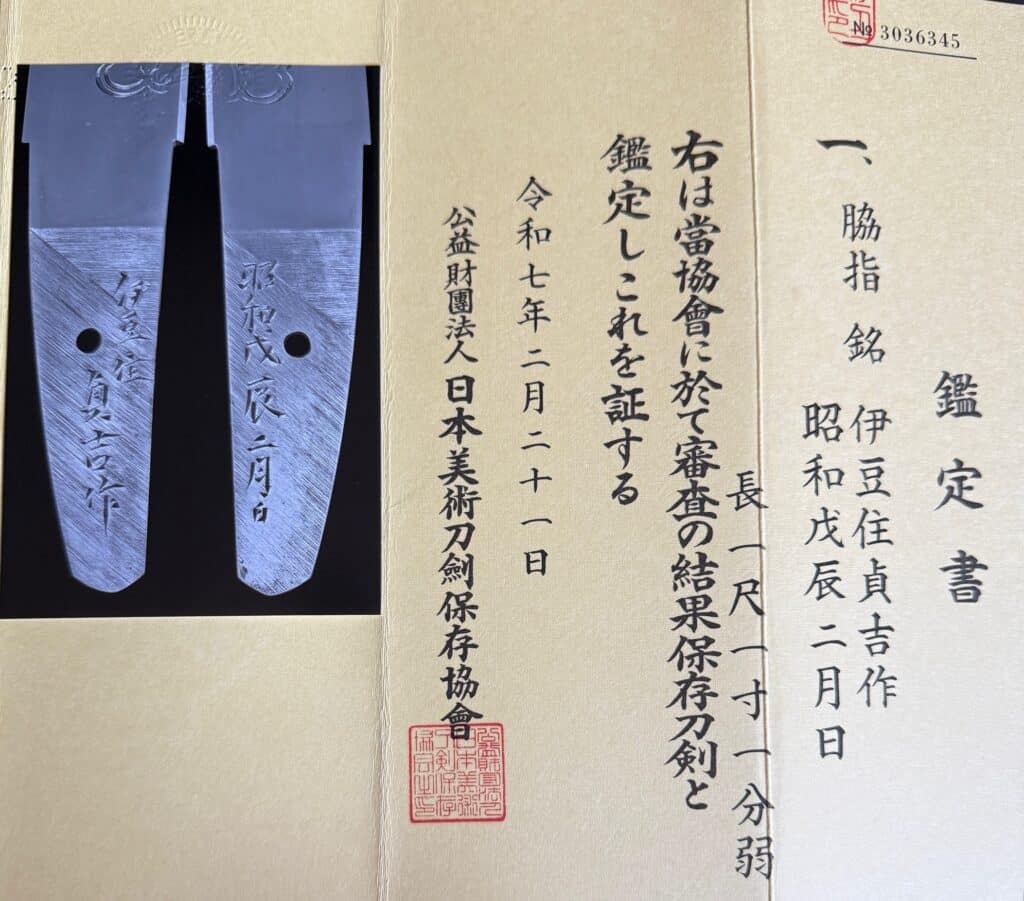 № 3036345
鑑定書
一、脇指 銘 伊豆住貞吉作
昭和戊辰二月日
長一尺一寸一分弱
右は當協會に於て審査の結果保存刀剣と
鑑定しこれを証する
令和七年二月二十一日
公益財團法人日本美術刀劍保存協會
昭和戊辰二月日
伊豆住
貞吉作